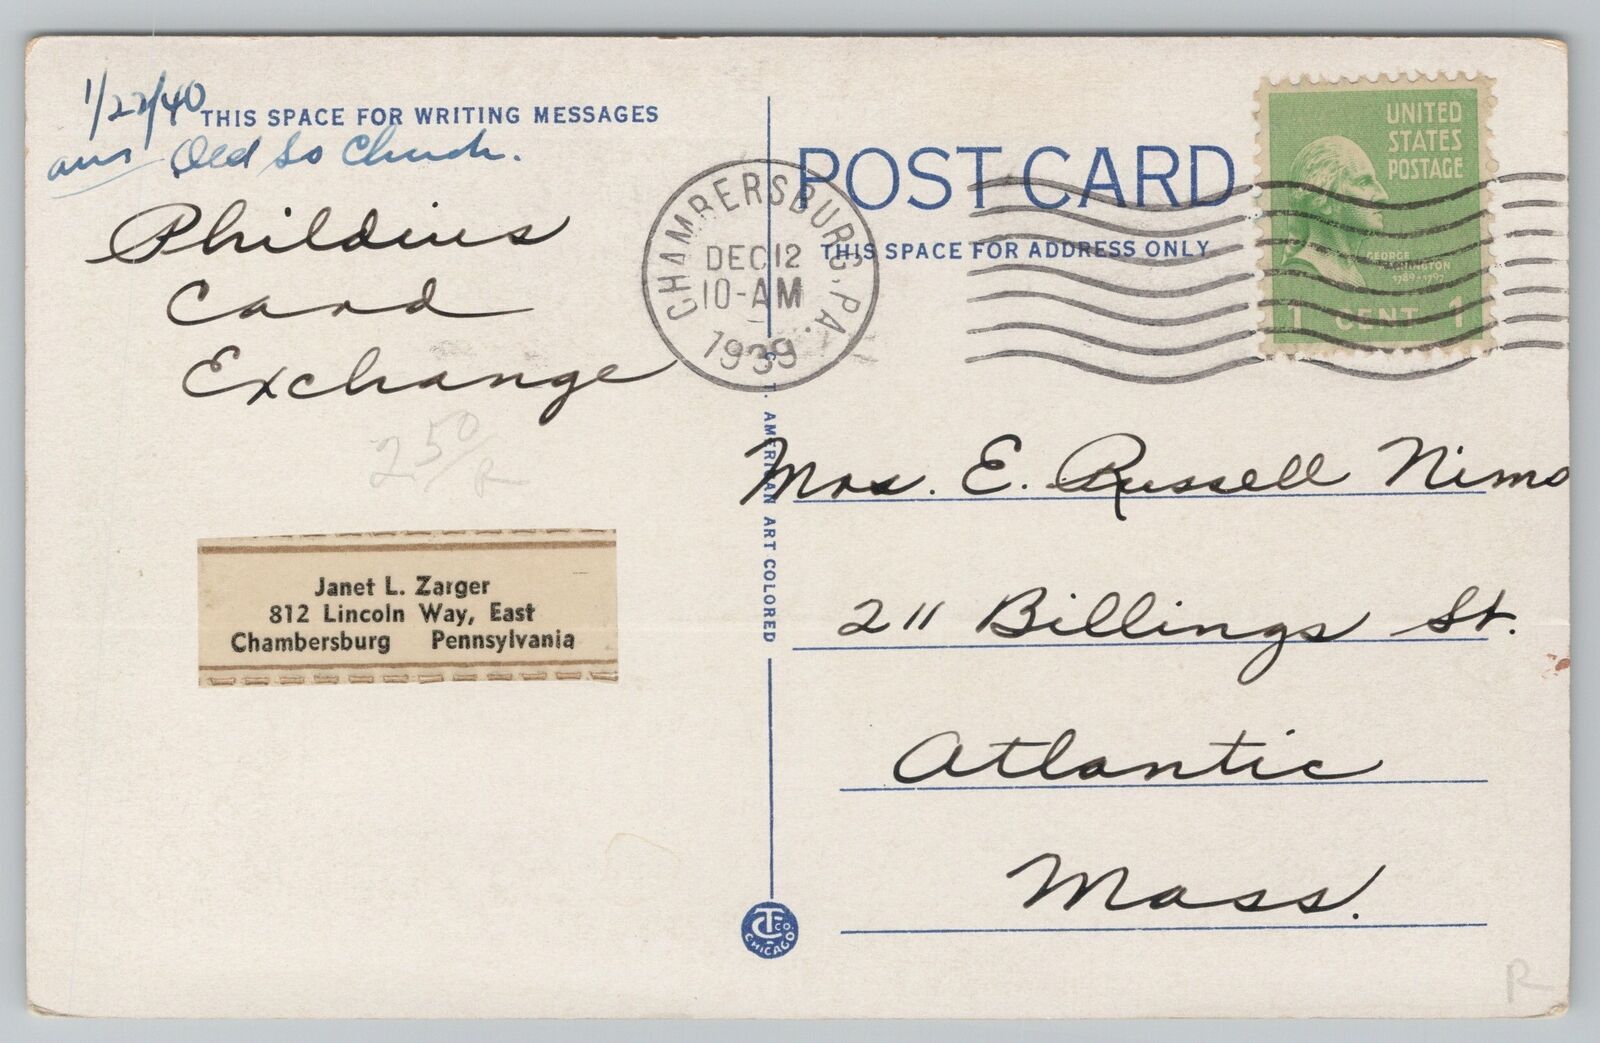 1/22/40
THIS SPACE FOR WRITING MESSAGES
ans Old So Church.
Phildius
Card
Exchange
250/R
Janet L. Zarger
812 Lincoln Way, East
Chambersburg Pennsylvania
CHAMBERSBURG, PA.
DEC 12
10-AM
1939
POST CARD
THIS SPACE FOR ADDRESS ONLY
UNITED
STATES
POSTAGE
GEORGE
WASHINGTON
1789-1797
1 CENT 1
C. T. AMERICAN ART COLORED
Mrs. E. Russell Nimo
211 Billings St.
Atlantic
Mass.
CT CO.
CHICAGO
R